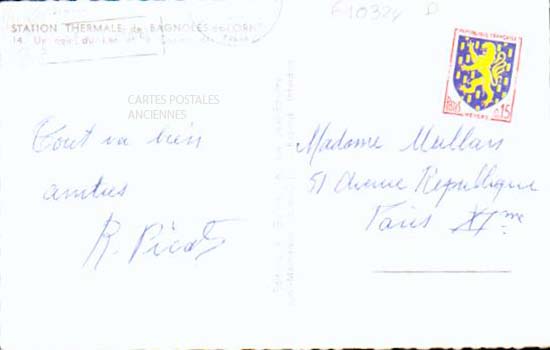 STATION THERMALE de BAGNOLES de l'ORNE
14. Un coin du Lac et le
CARTES POSTALES
ANCIENNES
Tout va bien
amitiés
R. Picot
E10324 D
REPUBLIQUE FRANÇAISE
NEVERS
0,15
Madame Mullars
51 Avenue République
Paris XIme